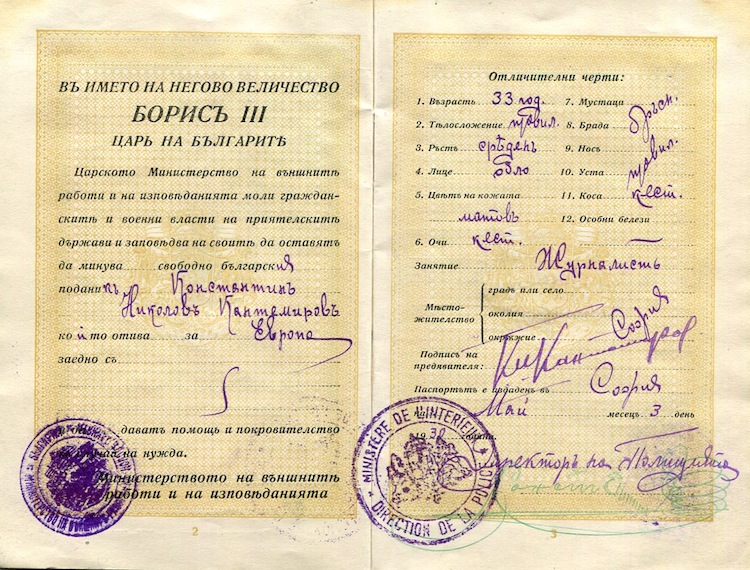 ВЪ ИМЕТО НА НЕГОВО ВЕЛИЧЕСТВО
БОРИСЪ III
ЦАРЬ НА БЪЛГАРИТѢ
Царското Министерство на външнитѣ
работи и на изповѣданията моли граждан-
скитѣ и военни власти на приятелскитѣ
държави и заповѣдва на своитѣ да оставятъ
да минува свободно българския
поданикъ Константинъ
Николовъ Кантемировъ
който отива за Европа
заедно съ
даватъ помощь и покровителство
на нужда.
Министерството на външнитѣ
работи и на изповѣданията
2
Отличителни черти:
1. Възрасть 33 год.
2. Тѣлосложение правил.
3. Ръстъ срѣденъ
4. Лице обло
5. Цвѣтъ на кожата
матовъ
6. Очи кест.
7. Мустаци
8. Брада бръсн.
9. Носъ
10. Уста правил.
11. Коса кест.
12. Особни белези
Занятие Журналистъ
Мѣсто-
жителство
градъ или село
околия София
окрѫжие
Подпись на
предявителя:
Паспортътъ е издаденъ въ София
Май месецъ 3 день
1930 година.
Директоръ на Полицията
MINISTÈRE DE L'INTÉRIEUR
DIRECTION DE LA POLICE
3